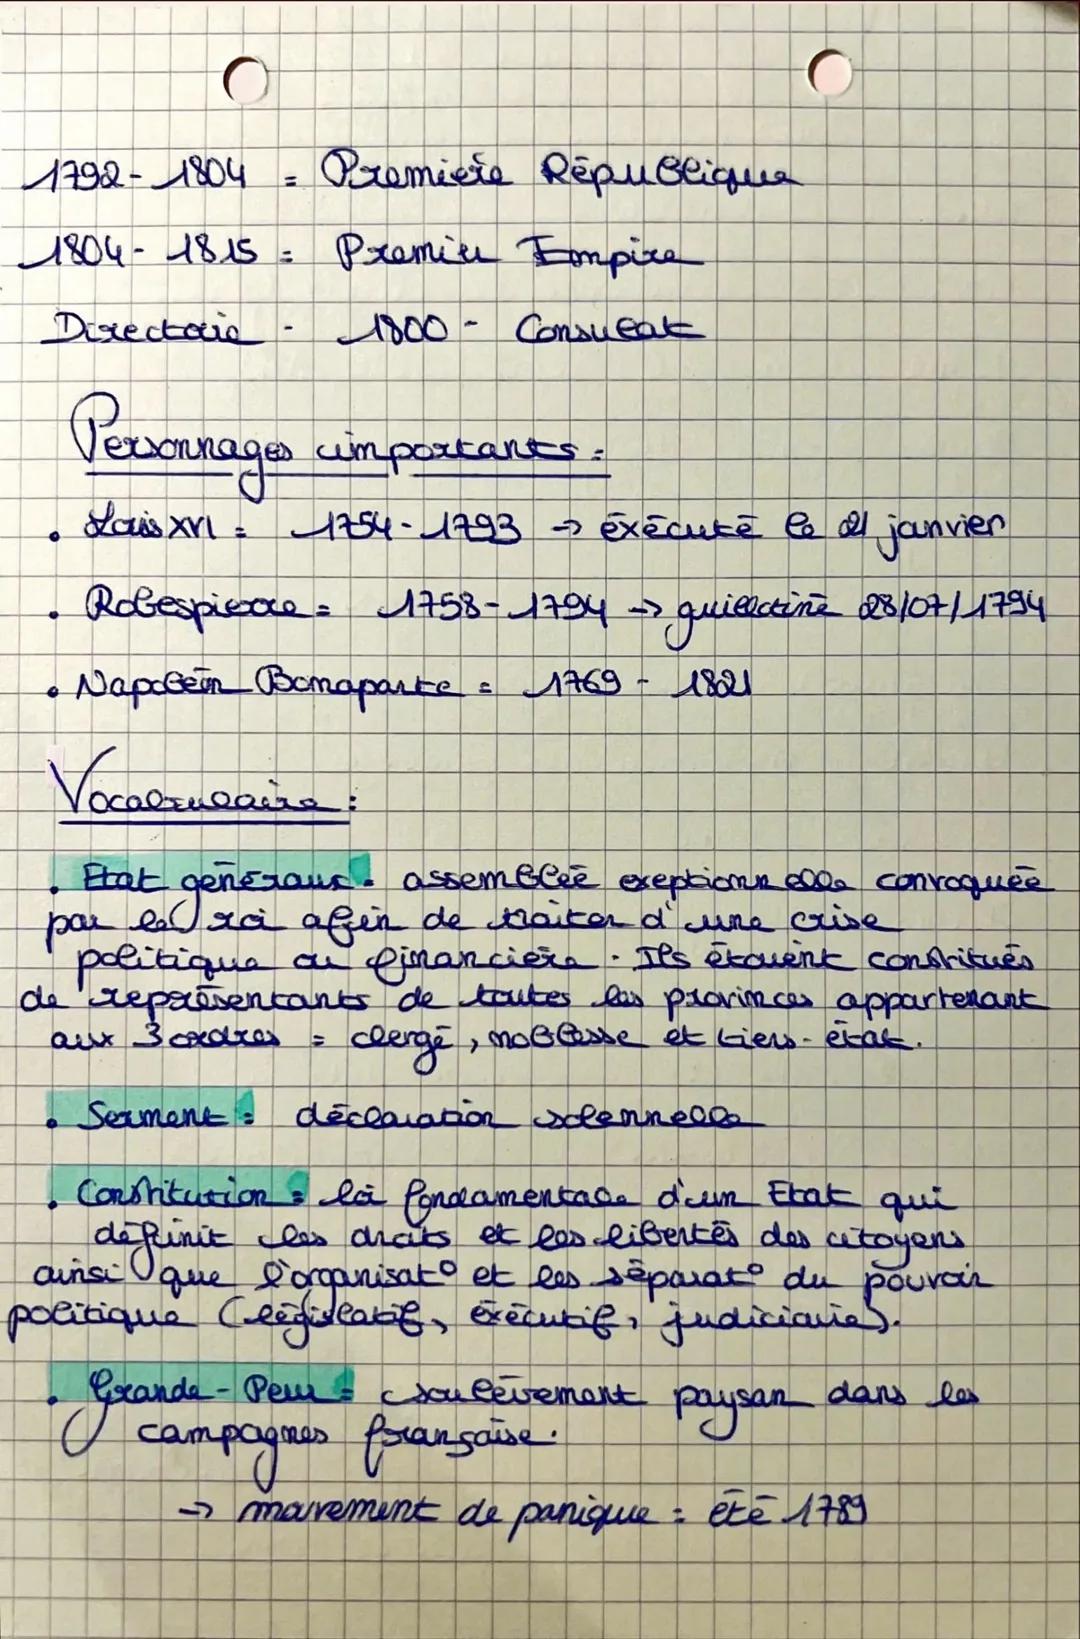 1792 - 1804 = Première République
1804 - 1815 = Premier Empire
Directoire - 1800 - Consulat
Personnages importants :
• Louis XVI = 1754 - 1793 → éxécuté le 21 janvier
• Robespierre = 1758 - 1794 → guillotiné 28/07/1794
• Napoléon Bonaparte = 1769 - 1821
Vocabulaire :
• Etat généraux = assemblée exeptionnelle convoquée
par le roi afin de traiter d'une crise
politique ou financière. Ils étaient constitués
de représentants de toutes les provinces appartenant
aux 3 ordres = clergé, noblesse et tiers-état.
• Serment = déclaration solennelle
• Constitution = loi fondamentale d'un Etat qui
définit les droits et les libertés des citoyens
ainsi que l'organisat° et les séparat° du pouvoir
politique (législatif, éxécutif, judiciaire).
• Grande-Peur = soulèvement paysan dans les
campagnes française.
→ mouvement de panique = été 1789